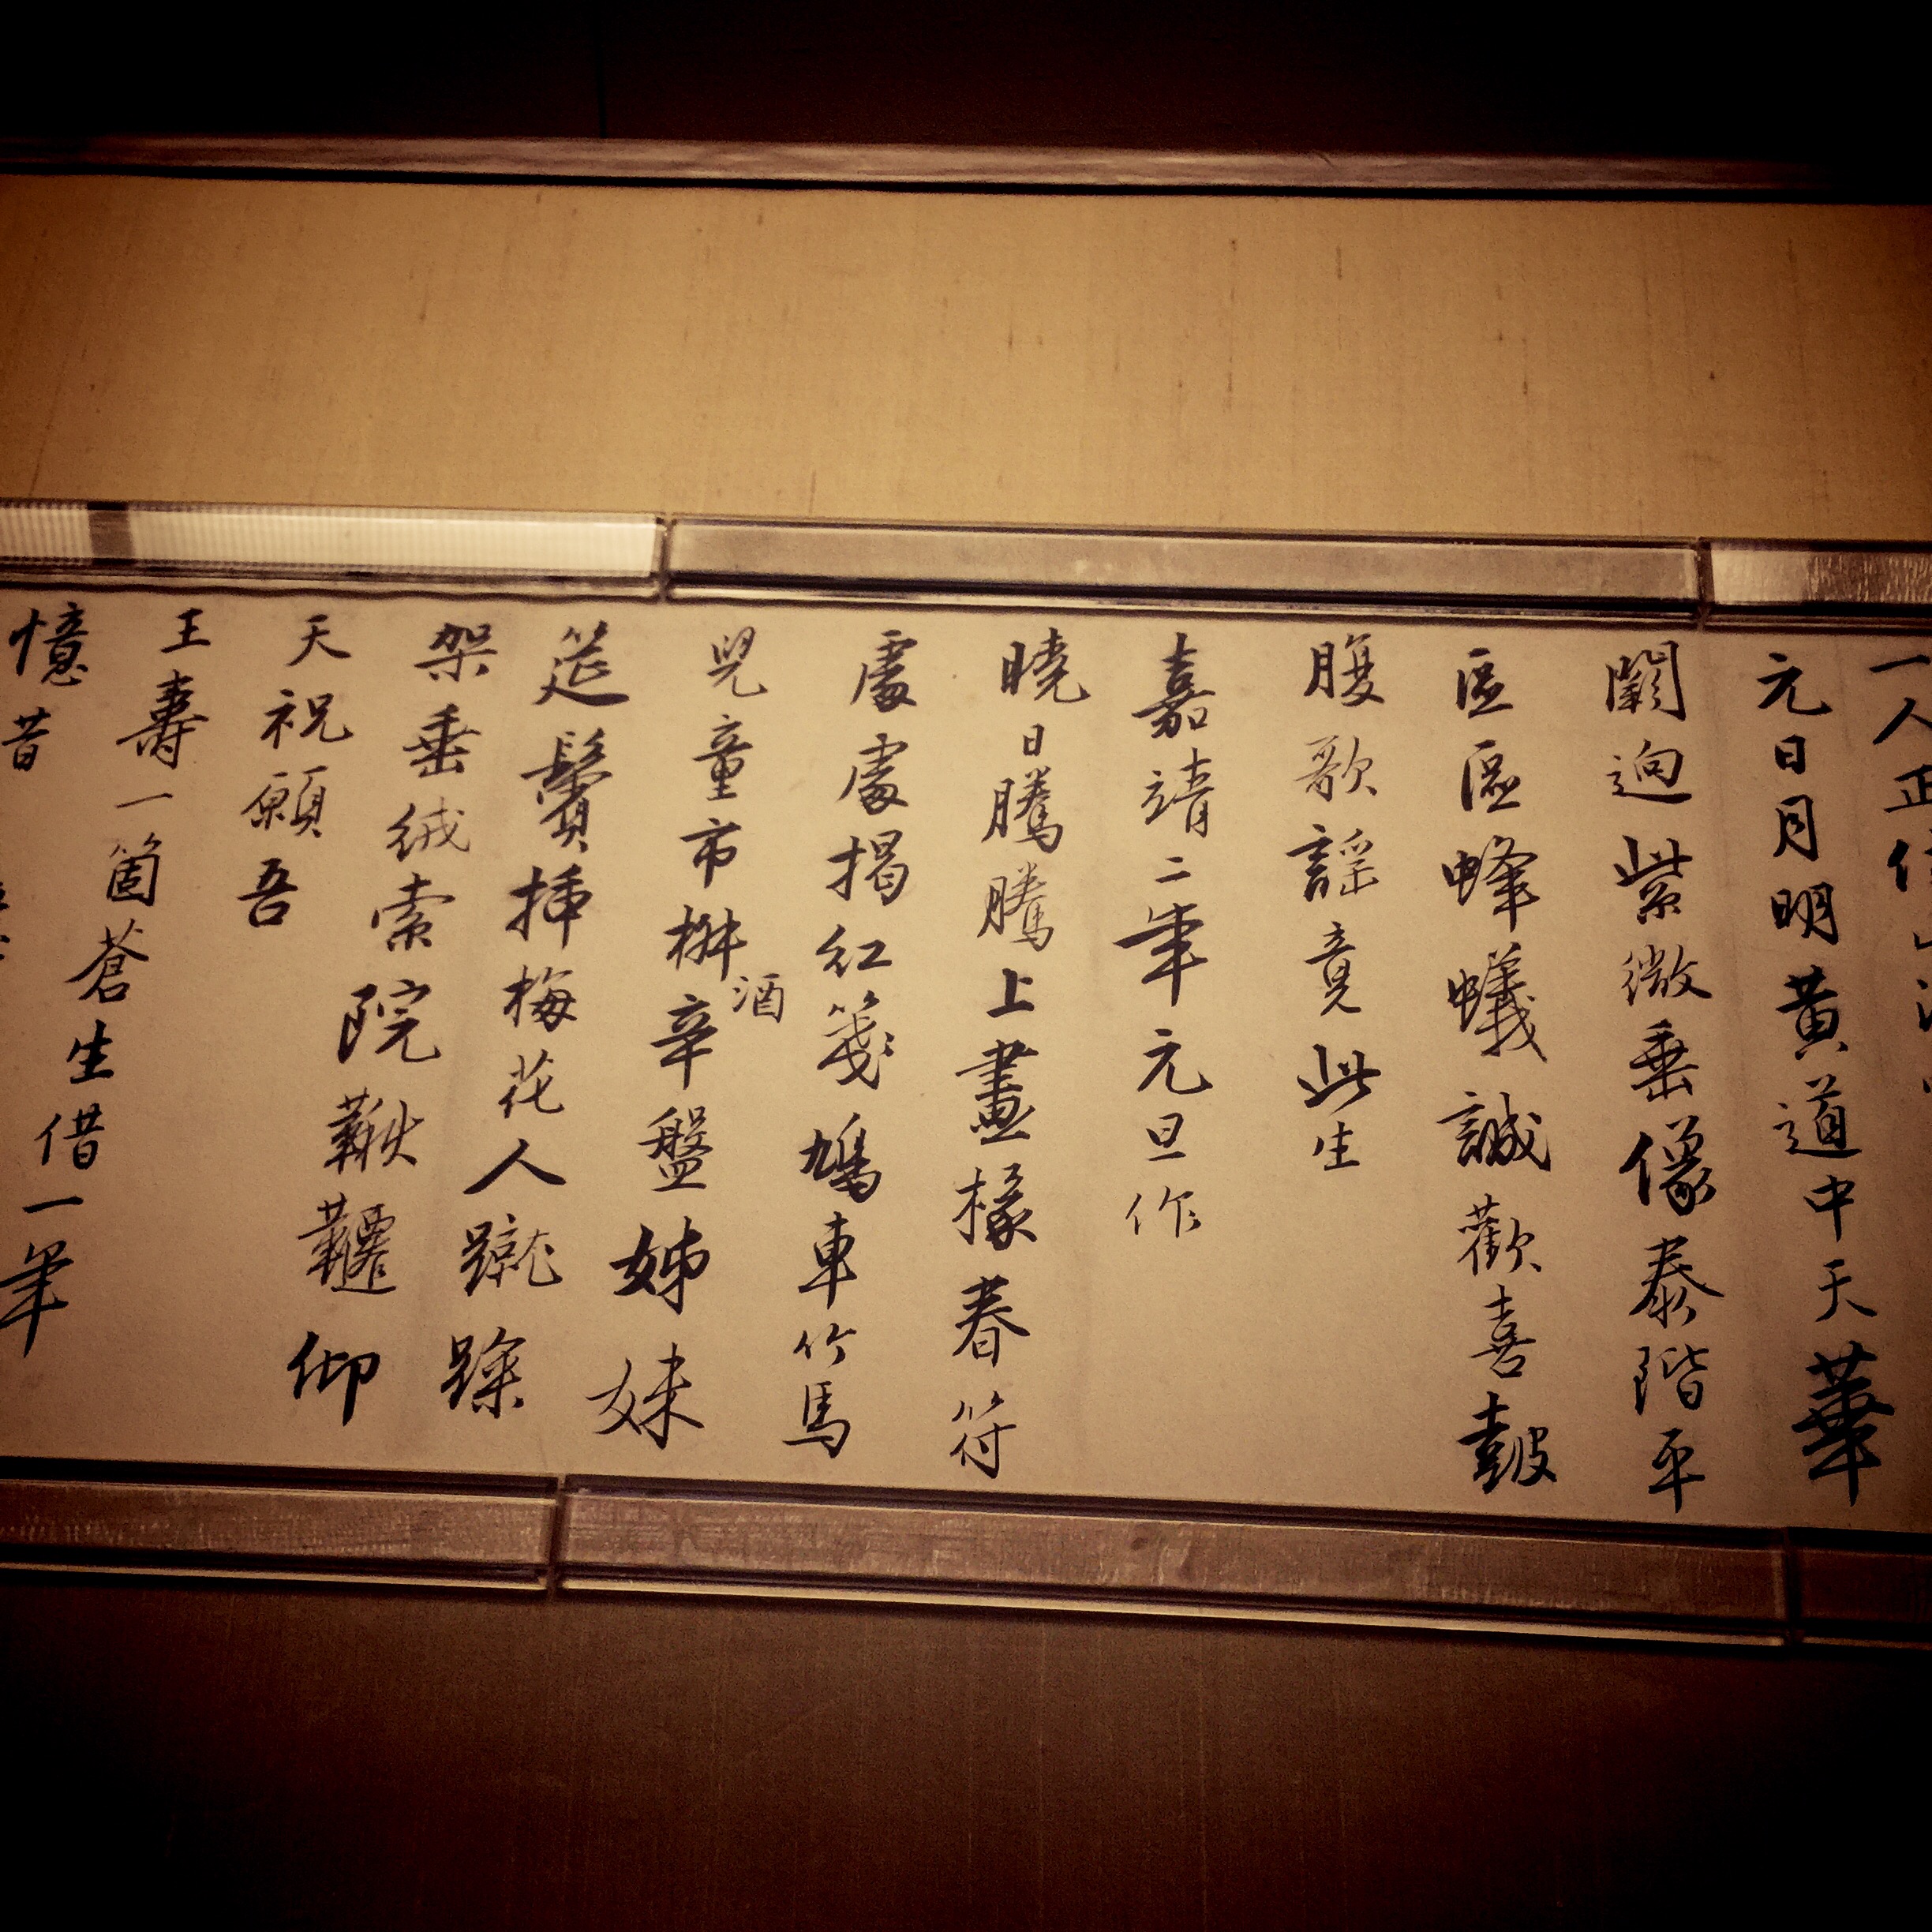 一人正
元日月明黃道中天華
闕迥紫微垂像泰階平
區區蜂蟻誠歡喜鼓
腹歌謠竟此生
嘉靖二年元旦作
曉日騰騰上畫椽春符
處處揭紅箋鳩車竹馬
兒童市椒辛盤姊妹
酒
筵鬢插梅花人蹴踘
架垂絨索院鞦韆仰
天祝願吾
王壽一箇蒼生借一年
憶昔